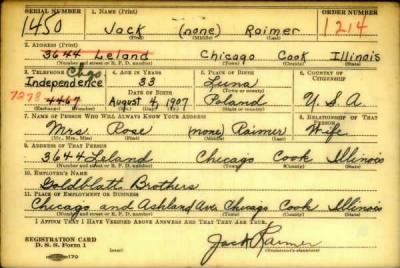 SERIAL NUMBER 1. NAME (Print) ORDER NUMBER
1450 Jack (none) Raimer 1214
(First) (Middle) (Last)
2. ADDRESS (Print)
3644 Leland Chicago Cook Illinois
(Number and street or R. F. D. number) (Town) (County) (State)
3. TELEPHONE Chgo 4. AGE IN YEARS 5. PLACE OF BIRTH 6. COUNTRY OF CITIZENSHIP
Independence 33 Luna
DATE OF BIRTH (Town or county)
7278 4467 August 4, 1907 Poland U. S. A.
(Exchange) (Number) (Mo.) (Day) (Yr.) (State or country)
7. NAME OF PERSON WHO WILL ALWAYS KNOW YOUR ADDRESS 8. RELATIONSHIP OF THAT PERSON
Mrs. Rose (none) Raimer Wife
(Mr., Mrs., Miss) (First) (Middle) (Last)
9. ADDRESS OF THAT PERSON
3644 Leland Chicago Cook Illinois
(Number and street or R. F. D. number) (Town) (County) (State)
10. EMPLOYER'S NAME
Goldblatt Brothers
11. PLACE OF EMPLOYMENT OR BUSINESS
Chicago and Ashland Ave. Chicago Cook Illinois
(Number and street or R. F. D. number) (Town) (County) (State)
I AFFIRM THAT I HAVE VERIFIED ABOVE ANSWERS AND THAT THEY ARE TRUE.
REGISTRATION CARD
D. S. S. Form 1 Jack Raimer
(Registrant's signature)